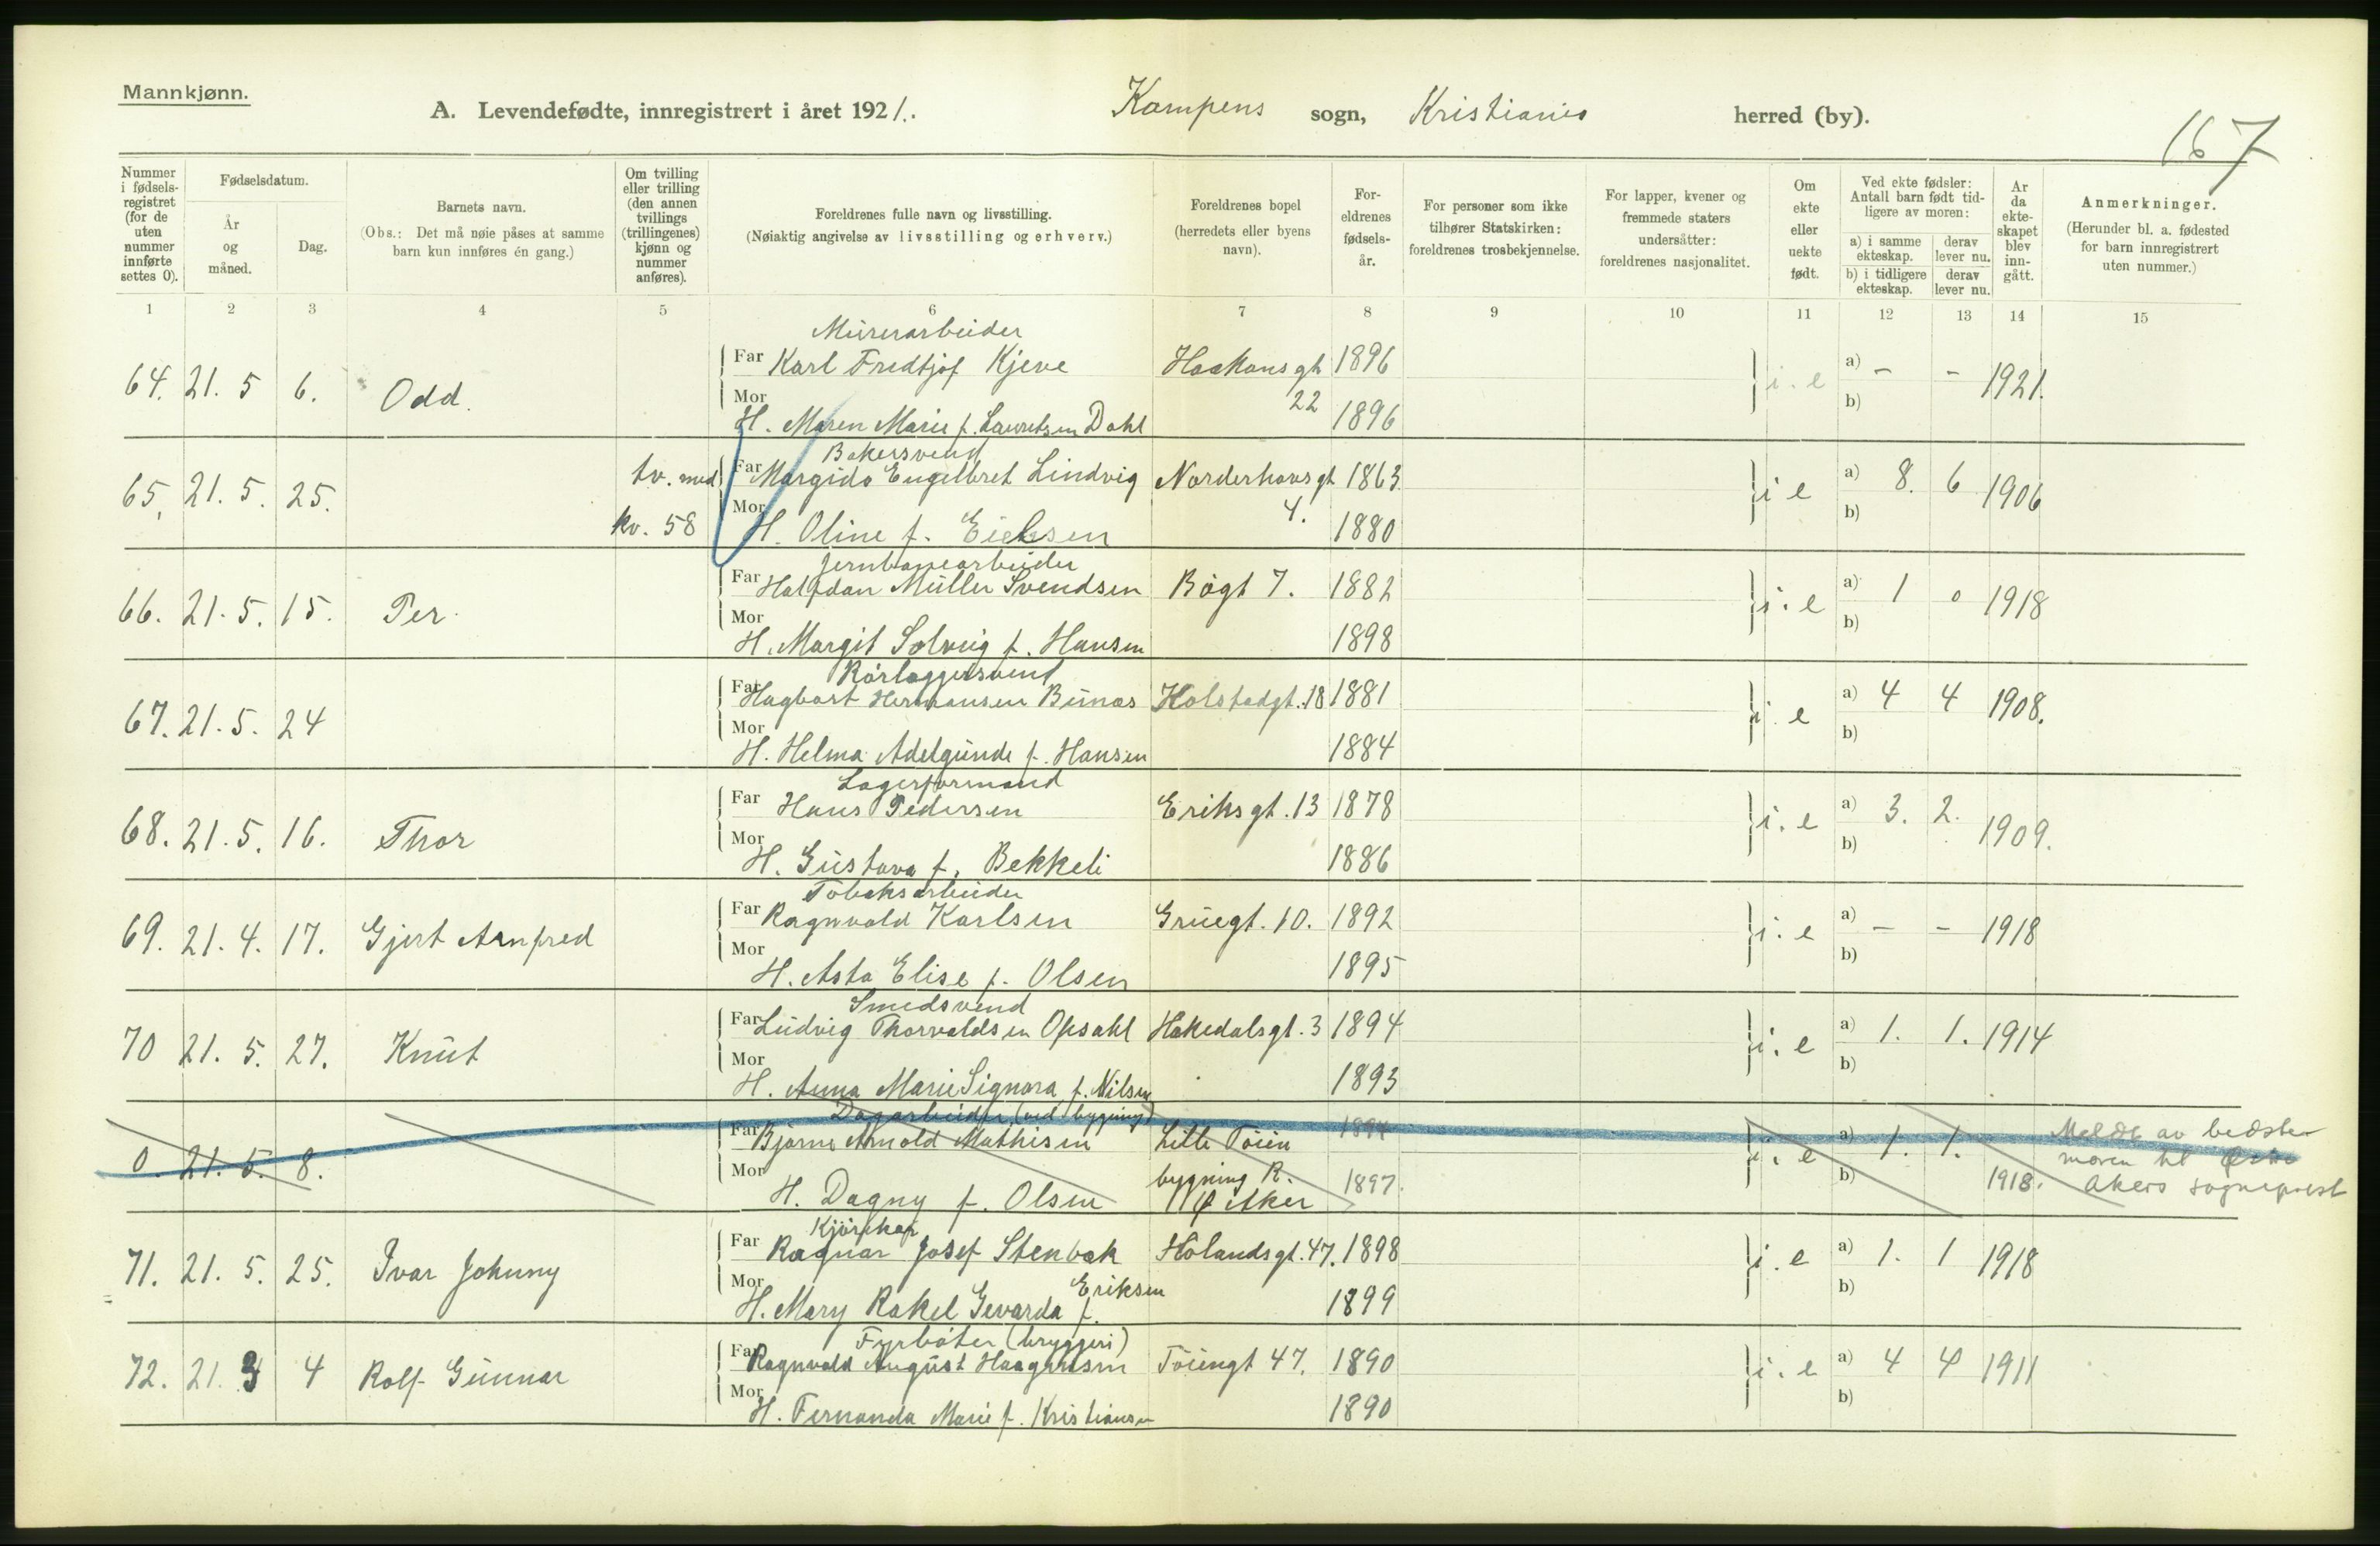 Mannkjønn.
A. Levendefødte, innregistrert i året 1921. Kampens sogn, Kristiania herred (by).
167
Nummer i fødsels-registret (for de uten nummer innførte settes 0).
Fødselsdatum.
År og måned.
Dag.
Barnets navn.
(Obs.: Det må nøie påses at samme barn kun innføres én gang.)
Om tvilling eller trilling (den annen tvillings (trillingenes) kjønn og nummer anføres).
Foreldrenes fulle navn og livsstilling.
(Nøiaktig angivelse av livsstilling og erhverv.)
Foreldrenes bopel (herredets eller byens navn).
For-eldrenes fødsels-år.
For personer som ikke tilhører Statskirken: foreldrenes trosbekjennelse.
For lapper, kvener og fremmede staters undersåtter: foreldrenes nasjonalitet.
Om ekte eller uekte født.
Ved ekte fødsler: Antall barn født tid-ligere av moren:
a) i samme ekteskap.
derav lever nu.
b) i tidligere ekteskap.
derav lever nu.
År da ekte-skapet blev inn-gått.
Anmerkninger.
(Herunder bl. a. fødested for barn innregistrert uten nummer.)
1 2 3 4 5 6 7 8 9 10 11 12 13 14 15
Murerarbeider
64. 21. 5 6. Odd. Far Karl Fredtjof Kjeve Haakonsgt 22 1896 i. e a) - - 1921.
Mor H. Maren Marie f. Lauritsen Dahl 1896 b)
Bakersvend
65. 21. 5. 25. tv. med kv. 58 Far Margido Engelbret Lindvig Norderhovsgt 4. 1863 i e a) 8. 6 1906
Mor H. Oline f. Eriksen 1880 b)
Jernbanearbeider
66. 21. 5. 15. Per. Far Halfdan Müller Svendsen Bögt 7. 1882 i. e a) 1 0 1918
Mor H. Margit Solveig f. Hansen 1898 b)
Rörlæggersvend
67. 21. 5. 24 Far Hagbart Hermansen Bunæs Kolstadgt. 18 1881 i. e a) 4 4 1908.
Mor H. Helma Adelgunde f. Hansen 1884 b)
Lagerformand
68. 21. 5. 16. Thor Far Hans Pedersen Eriksgt. 13 1878 i. e a) 3. 2. 1909.
Mor H. Gustava f. Bekkeli 1886 b)
Tobaksarbeider
69. 21. 4. 17. Gjert Arnfred Far Ragnvald Karlsen Gruegt. 10. 1892 i. e a) - - 1918
Mor H. Asta Elise f. Olsen 1895 b)
Smedsvend
70 21. 5. 27. Knut Far Ludvig Thorvaldsen Opsahl Hakedalsgt. 3 1894 i. e a) 1. 1. 1914
Mor H. Anna Marie Signora f. Nilsen 1893 b)
Dagarbeider (ved bygning)
0. 21. 5. 8. Far Bjarne Arnold Mathisen Lille Töien 1894 i. e a) 1. 1. Meldt av bedste-
Mor H. Dagny f. Olsen bygning R. 1897. b) 1918. moren til Østre
Ø Aker Akers sogneprest
Kjörekar
71. 21. 5. 25. Ivar Johnny Far Ragnar Josef Stenbæk Hölandsgt. 47. 1898 i. e a) 1. 1 1918
Mor H. Mary Rakel Gevarda f. Eriksen 1899 b)
Fyrböter (bryggeri)
72. 21. 3 4 Rolf Gunnar Far Ragnvald August Haagensen Töiengt 47. 1890 i. e a) 4 4 1911
Mor H. Fernanda Marie f. Kristiansen 1890 b)